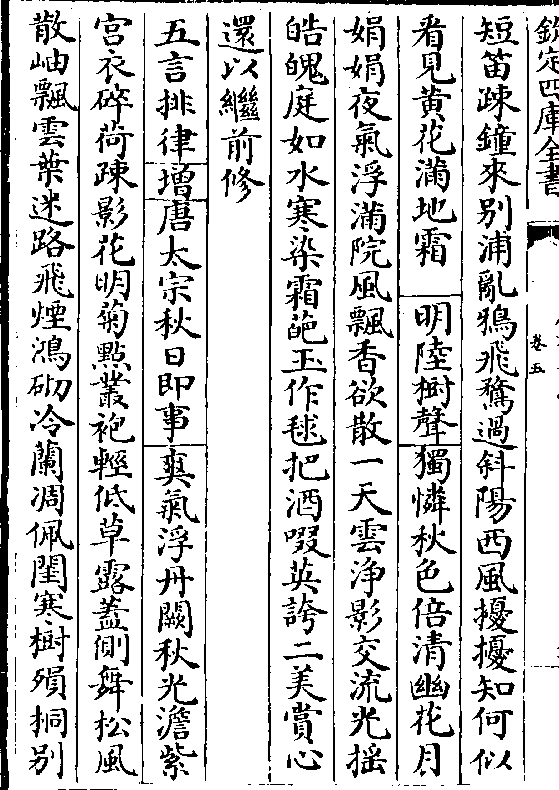 欽定四庫全書
卷五
短笛疎鐘來別浦亂鴉飛鶩過斜陽西風擾擾知何似
看見黄花滿地霜 明陸樹聲獨憐秋色倍清幽花月
娟娟夜氣浮滿院風飄香欲散一天雲浄影交流光揺
皓魄庭如水寒染霜葩玉作毬把酒啜英誇二美賞心
還以繼前修
五言排律增唐太宗秋日即事爽氣浮丹闕秋光澹紫
宫衣碎荷疎影花明菊點叢袍輕低草露蓋側舞松風
散岫飄雲葉迷路飛煙鴻砌冷蘭凋佩閨寒樹殞桐別